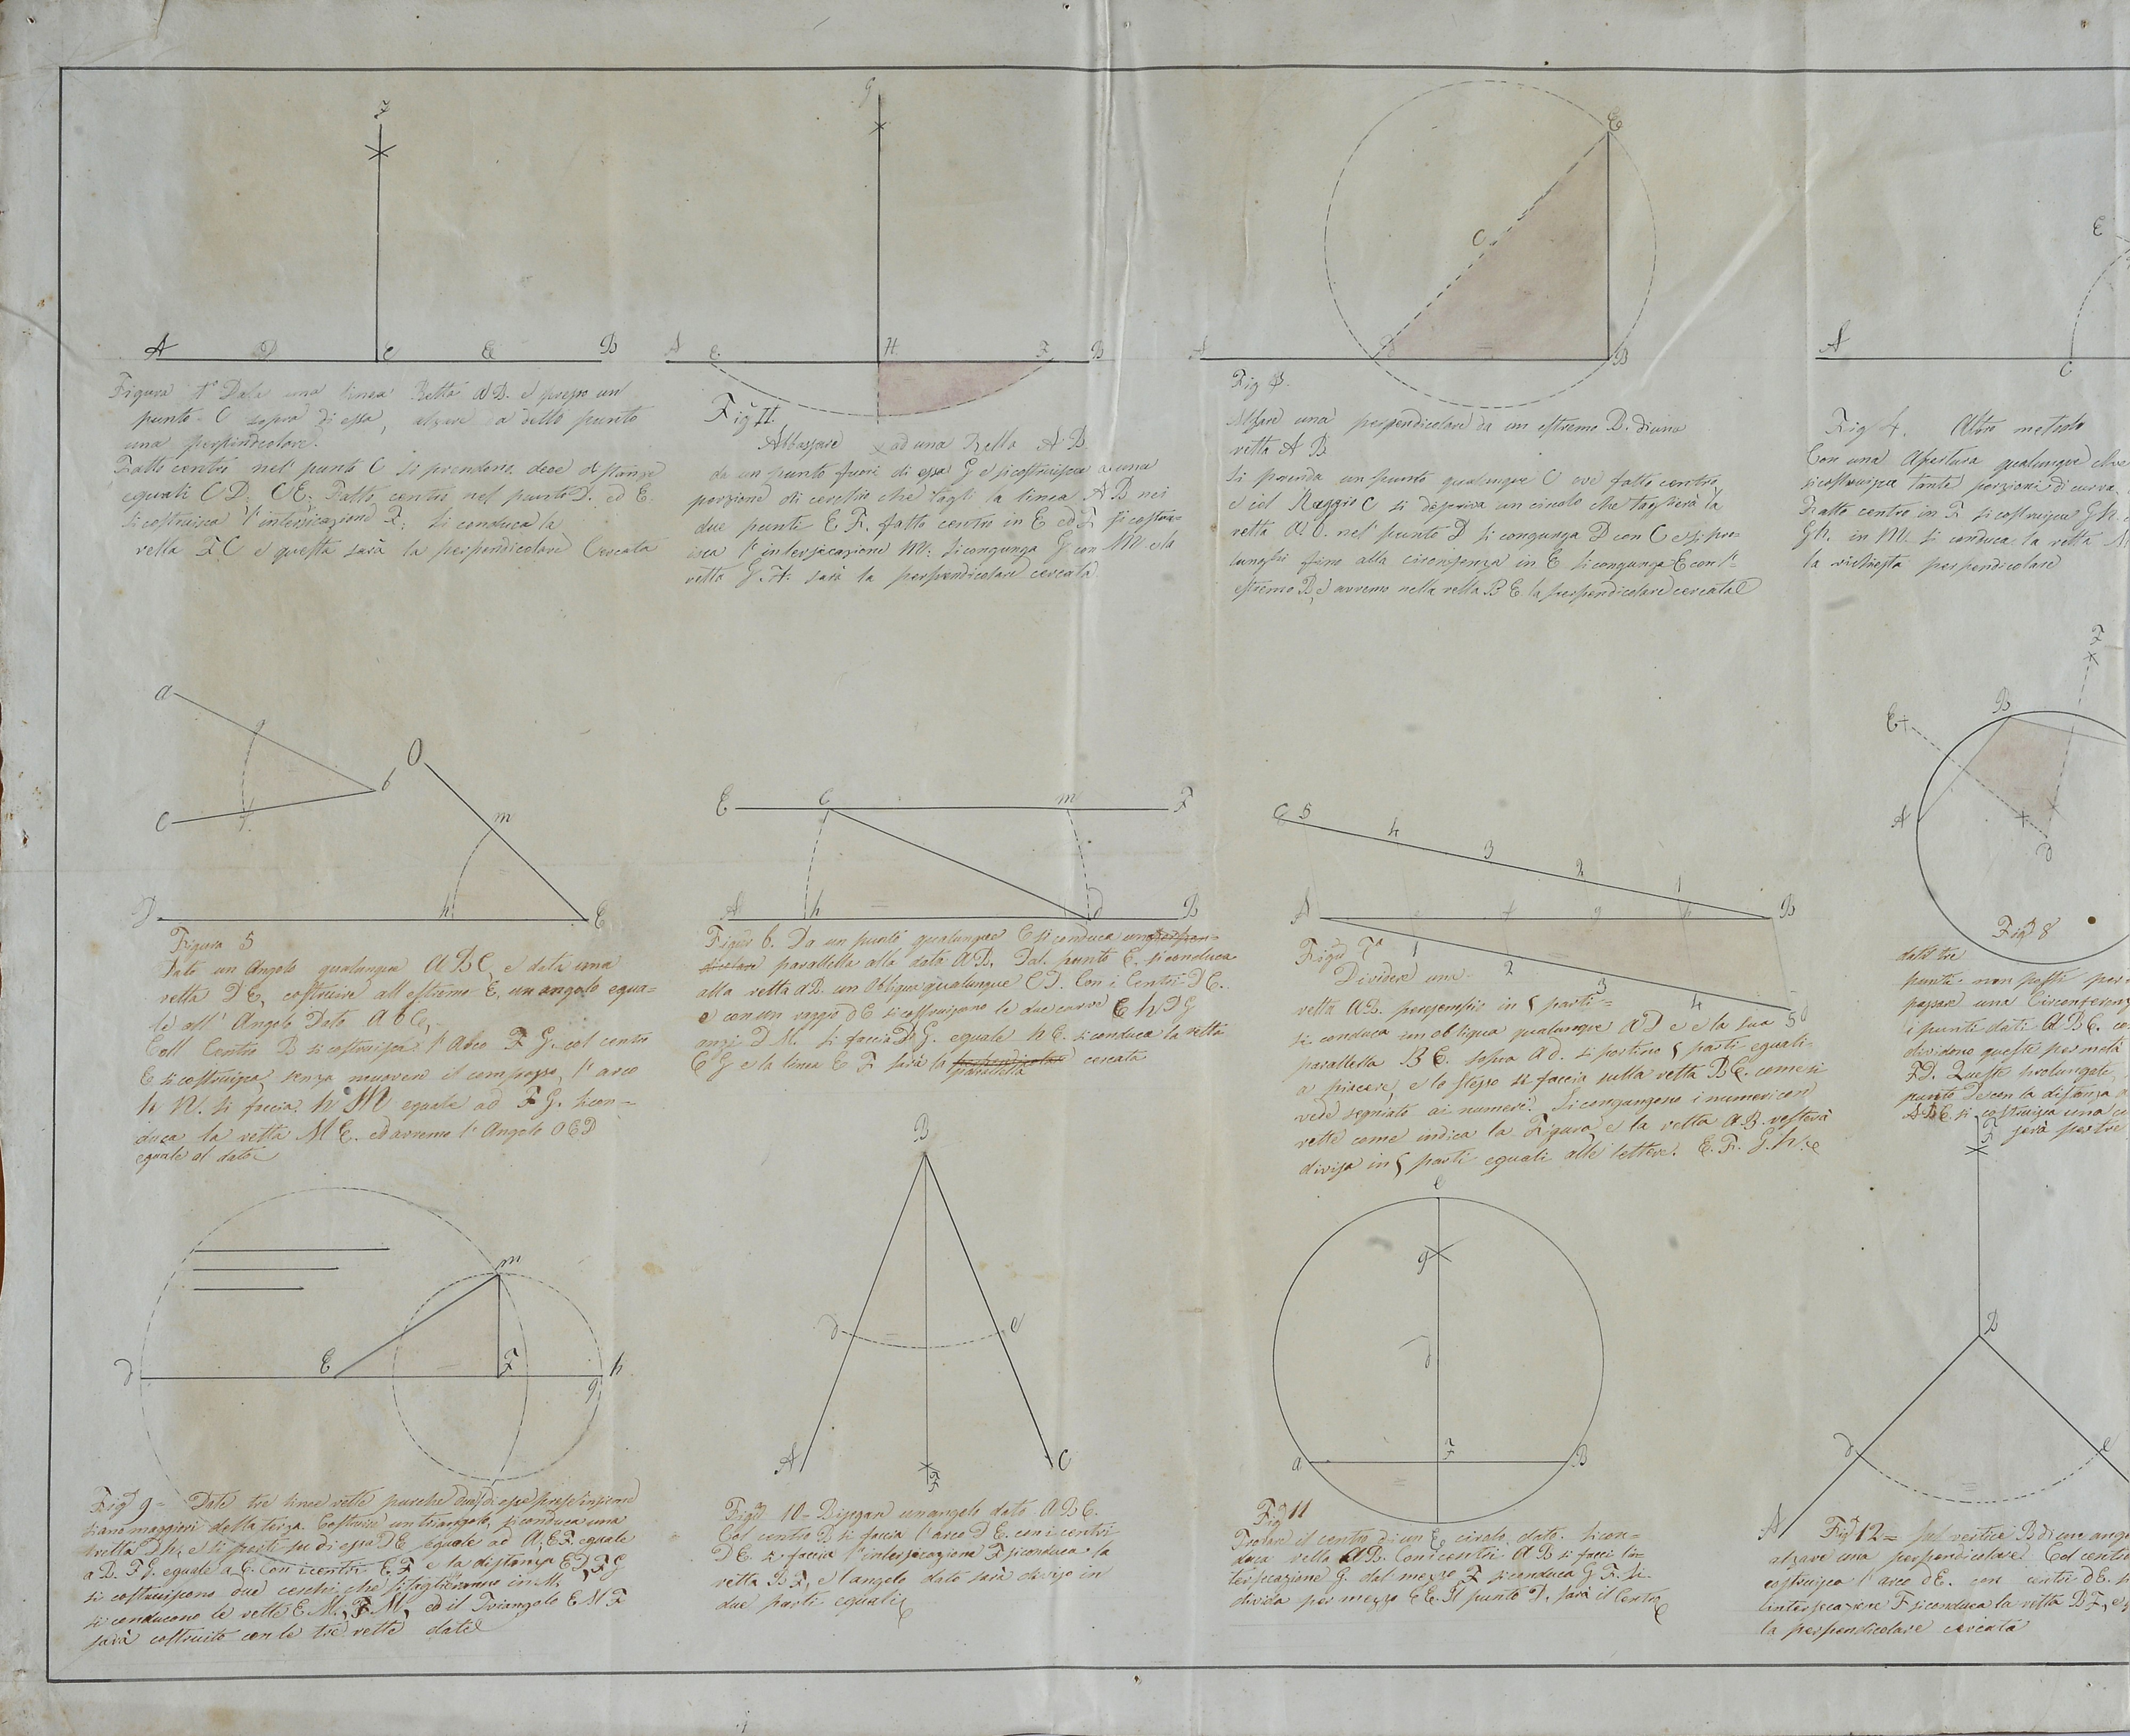 Figura 1ª Data una linea Retta AB. e preso un
punto C sopra di essa, alzare da detto punto
una perpindicolare.
Fatto centro nel punto C si prendono due distanze
eguali CD: CE: Fatto centro nel punto D. ed E.
si costruisca l'intersicazione F: si conduca la
retta FC e questa sarà la perpendicolare Cercata
Fig II.
Abbassare ad una Retta A B
da un punto fuori di essa G e si costruisca una
porzione di cerchio che tagli la linea A B nei
due punti E F. fatto centro in E ed F si costru=
isca l'intersecazione M: si congunga G con M e la
retta G.H: sarà la perpendicolare cercata.
Fig 3.
Alzare una perpendicolare da un estremo B. di una
retta A B
Si prenda un punto qualunque C ove fatto centro
e col Raggio C si descriva un circolo che taglierà la
retta A.B. nel punto D si congunga D con C e si pro=
lunghi fino alla circonferenza in E si congunga E con l'=
estremo B, e avremo nella retta B E la perpendicolare cercata
Fig 4. Altro metodo
Con una Apertura qualunque
si costruisca tante porzioni di curva.
Fatto centro in F si costruisca G h.
G h. in M si conduca la retta
la richiesta perpendicolare
Figura 5
Dato un Angolo qualunque A B C, e data una
retta D E, costruire all'estremo E, un angolo egua=
le all'Angolo Dato A b C,
Coll Centro B si costruisca l'Arco F G. col centro
E si costruisca senza muovere il compasso, l'arco
h N. si faccia h M eguale ad F G. si con=
duca la retta M E. ed avremo l'Angolo O E D
eguale al dato
Figura 6. Da un punto qualunque C si conduca una perpen=
dicolare parallella alla data A B. Dal punto C. si conduca
alla retta A B. un Obliqua qualunque C D. Con i Centri D C.
e con un raggio d C si costruiscano le due curve C h D G
anzi D M. si faccia D G. eguale h C. si conduca la retta
C G e la linea E F sarà la perpendicolare cercata
parallella
Figª 7ª
Dividere una
retta A B. peresempio in 5 parti=
si conduca un obliqua qualunque A D e la sua
parallella B C. sopra A d. si portino 5 parti eguali
a piacere, e lo stesso si faccia sulla retta B C. come si
vede segniato ai numeri. Si congungono i numeri con
rette come indica la Figura e la retta A.B. resterà
divisa in 5 parti eguali alle lettere. E. F. G. h.
Figª 8
dati tre
punti non posti per
passare una Circonferenz
i punti dati A B C. co
dividono queste per metà
F D. Queste prolungate
punto D e con la distanza
A B C. si costruisca una
sarà per tre
Figª 9= Date tre linee rette purche due di esse prese insieme
siano maggiori della terza. Costruire un triangolo, si conduca una
retta D h, e si porti su di essa D E eguale ad A; E F. eguale
a B. F G. eguale a C. Con i centri E F e la distanza E D, F G
si costruiscono due cerchi che si taglieranno in M.
si conducono le rette E M, F M, ed il Triangolo E M F
sarà costruito con le tre rette date
Figª 10= un angolo dato A B C.
Col centro B si faccia l'arco D E. con i centri
D E. si faccia l'intersicazione F si conduca la
retta B F, e l'angolo dato sarà diviso in
due parti eguali
Figª 11
Trovare il centro di un circolo dato. Si con=
duca retta A B. Con i centri A B si facci l'in=
tersicazione G. dal mezzo F si conduca G F. si
divida per mezzo C E. Il punto D. sarà il Centro
Figª 12= Sul vertice B di un ang
alzare una perpendicolare Col centro
costruisca l'arco d E. con centri d E.
l'intersecazione F si conduca la retta B F,
la perpendicolare cercata